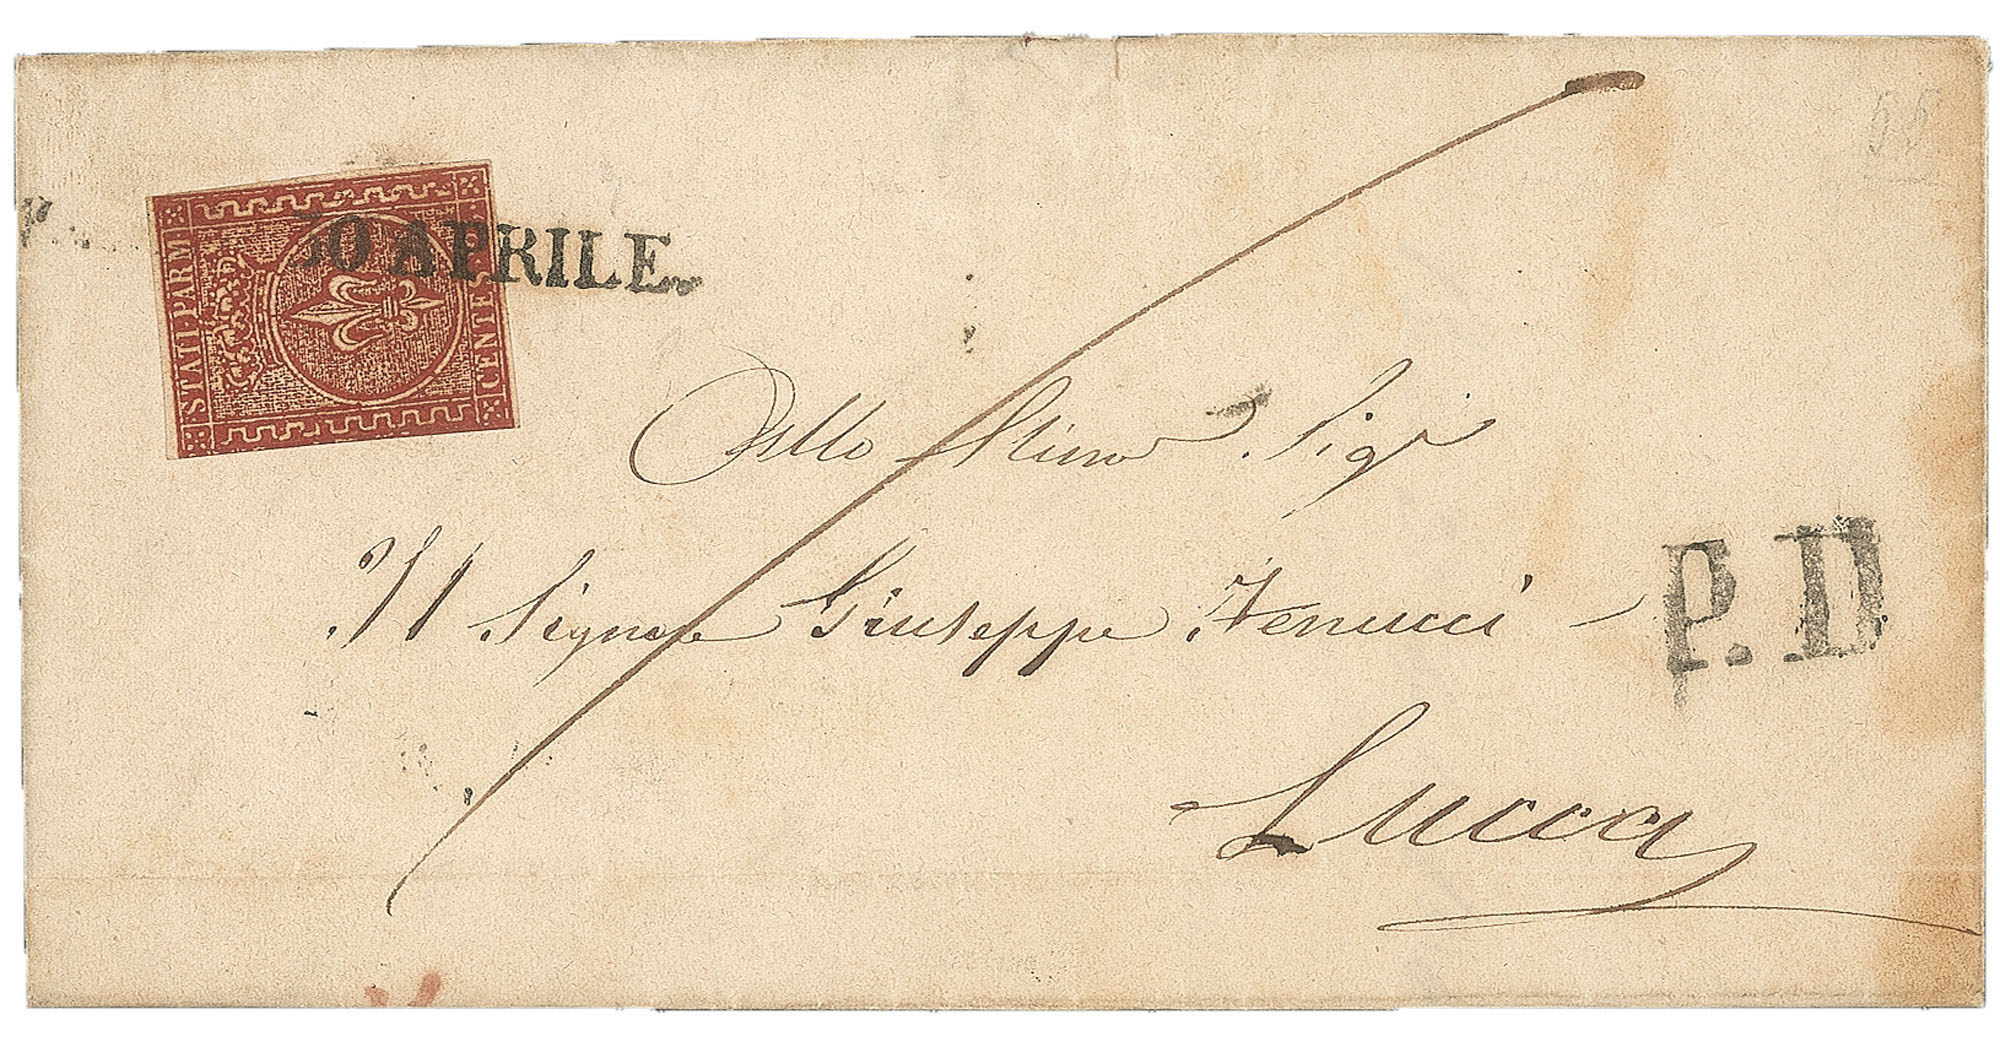 55
STATI PARM
CENTES
30 APRILE
Allo Stimo Sigr
Il Signore Giuseppe Fenucci
P.D
Lucca